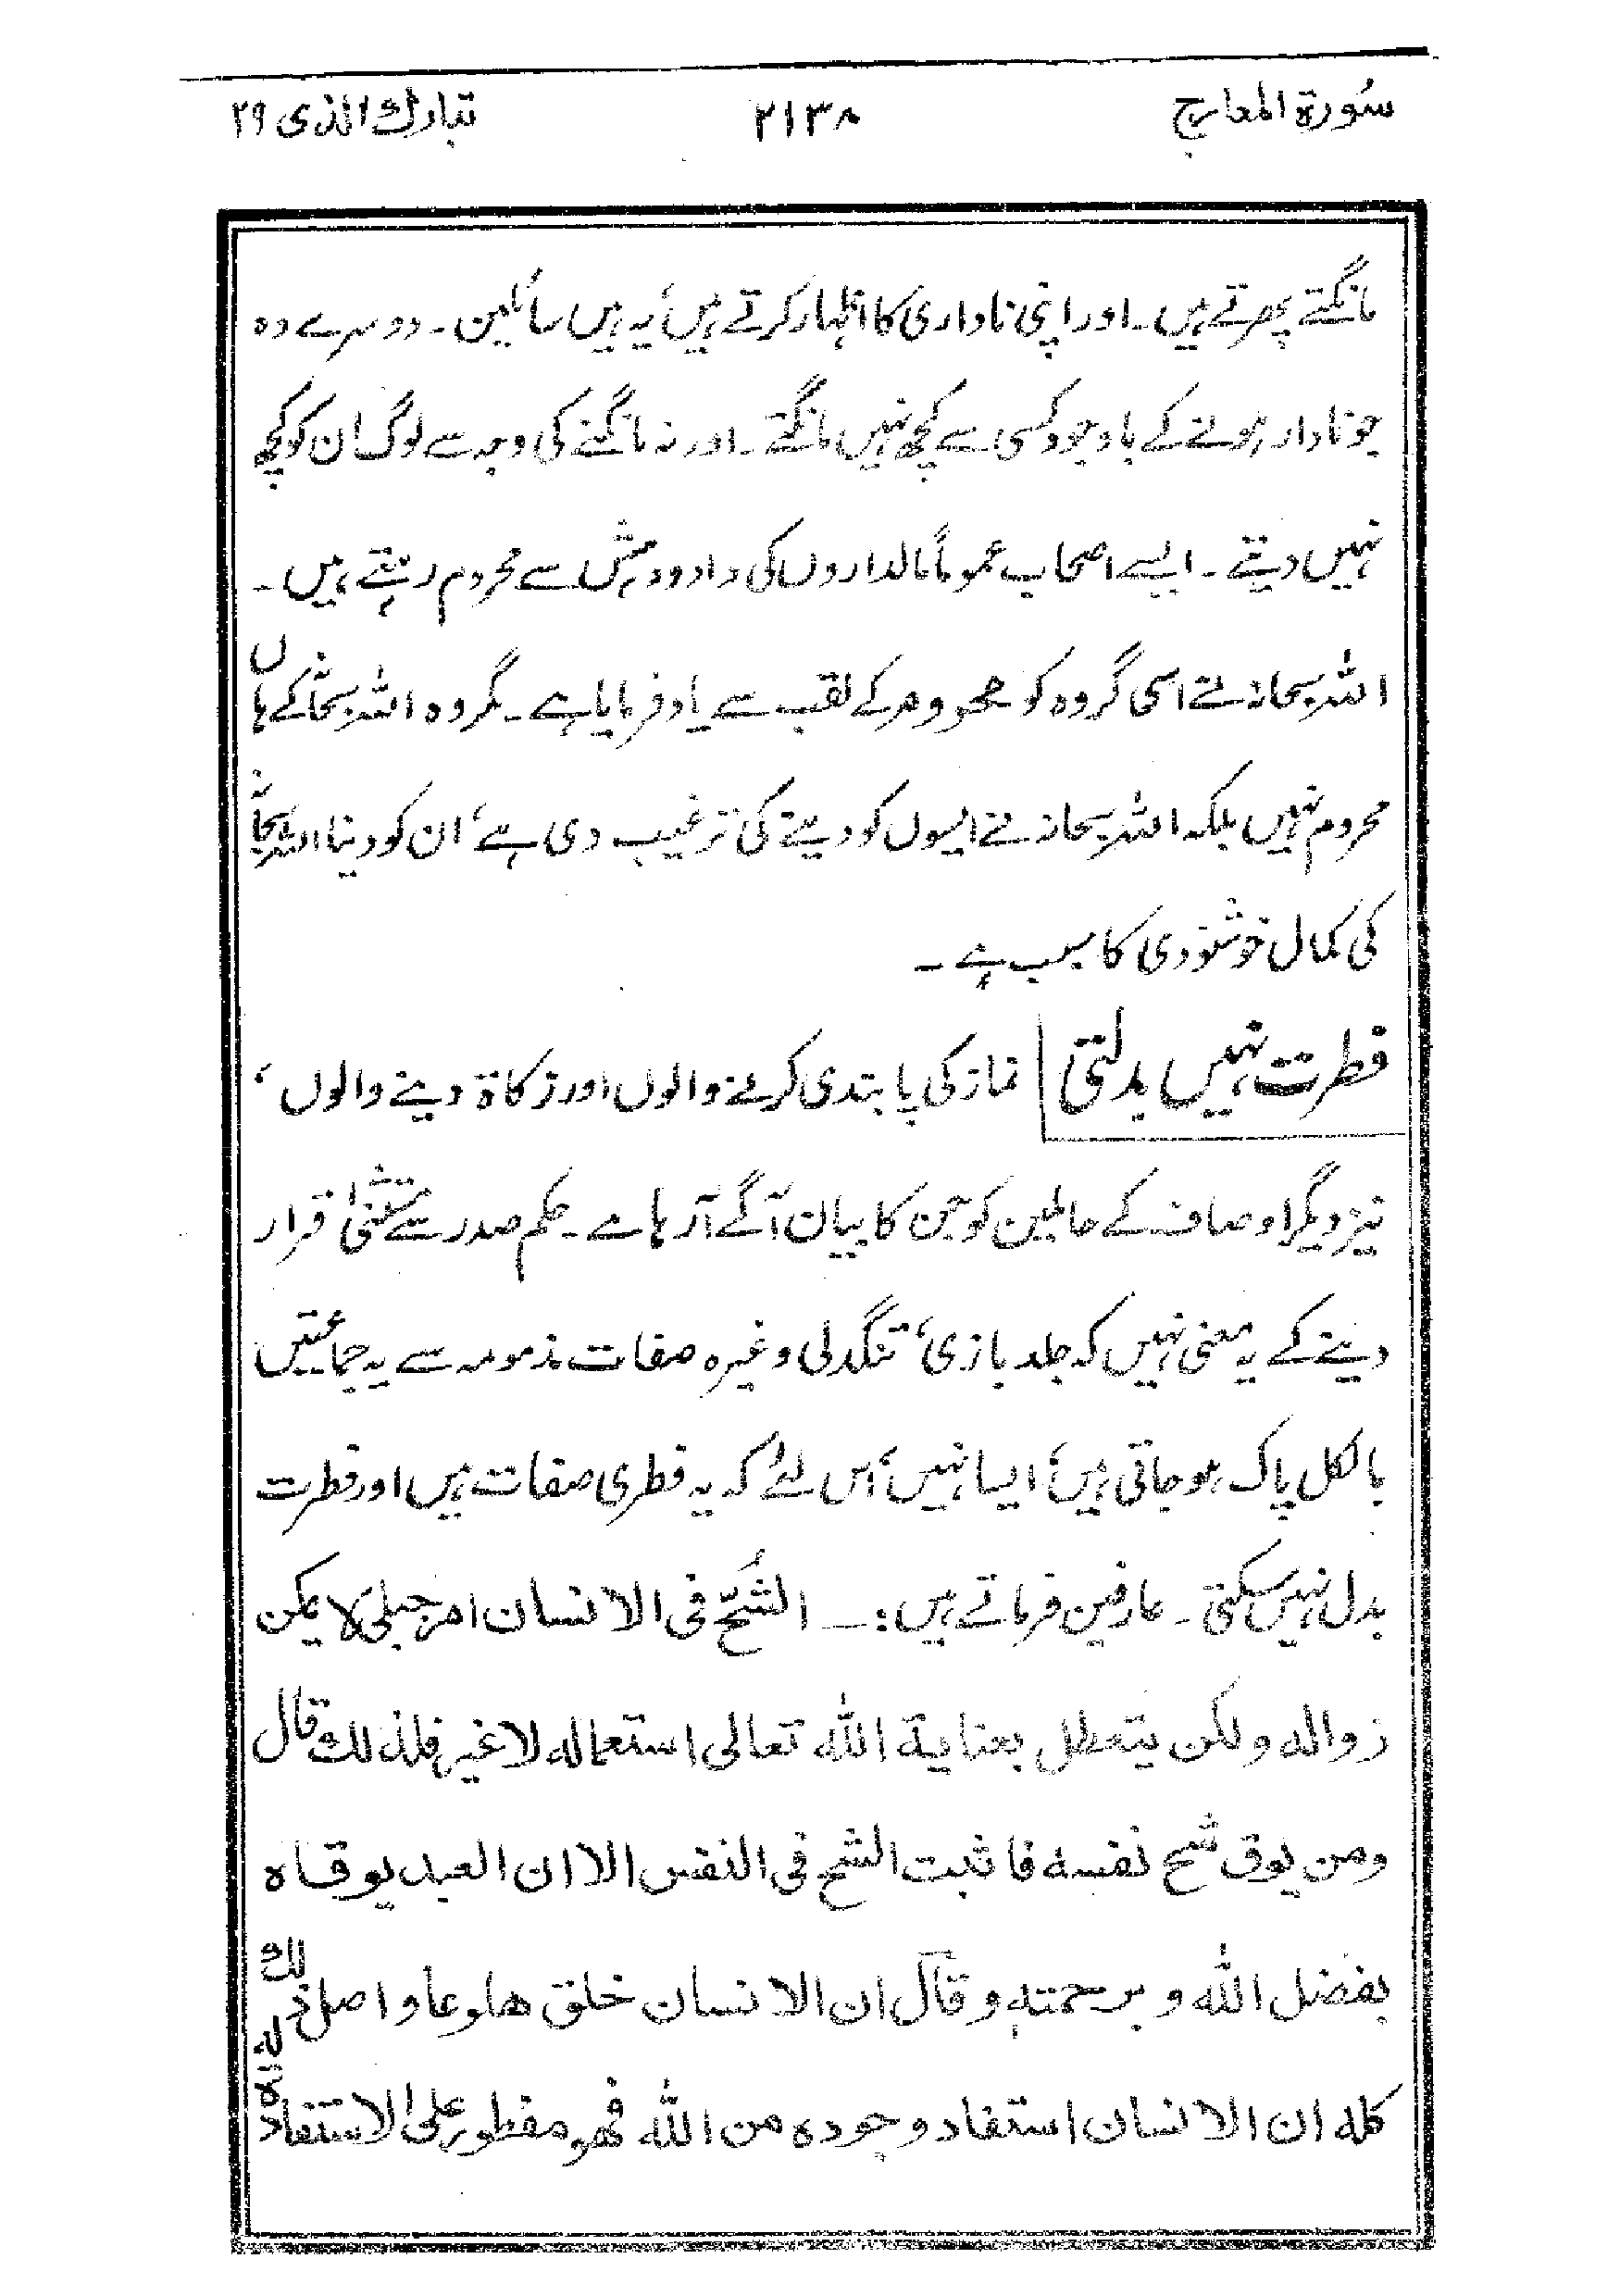 سُورة المعارج ۲۱۳۸ تبارك الذى ۲۹
مانگتے پھرتے ہیں۔ اور اپنی ناداری کا اظہار کرتے ہیں، یہ ہیں سائلین۔ دوسرے وہ
جو نادار ہونے کے باوجود کسی سے کچھ نہیں مانگتے۔ اور نہ مانگنے کی وجہ سے لوگ ان کو کچھ
نہیں دیتے۔ ایسے اصحاب عموماً مالداروں کی دادو دہش سے محروم رہتے ہیں۔
اللہ سبحانہ نے اسی گروہ کو محروم کے لقب سے یاد فرمایا ہے۔ مگر وہ اللہ سبحانہ کے ہاں
محروم نہیں بلکہ اللہ سبحانہ نے ایسوں کو دینے کی ترغیب دی ہے، ان کو دینا اللہ سبحانہ
کی کمال خوشنودی کا سبب ہے۔
فطرت نہیں بدلتی نماز کی پابندی کرنے والوں اور زکاۃ دینے والوں،
نیز دیگر اوصاف کے حاملین کو جن کا بیان آگے آرہا ہے۔ حکم صدر سے مستثنیٰ قرار
دینے کے یہ معنی نہیں کہ جلد بازی، تنگدلی وغیرہ صفات مذمومہ سے یہ جماعتیں
بالکل پاک ہو جاتی ہیں، ایسا نہیں، اس لئے کہ یہ فطری صفات ہیں اور فطرت
بدل نہیں سکتی۔ عارفین فرماتے ہیں:۔ الشُحّ فى الانسان امر جبلى لا يمكن
زواله ولكن يتعطل بعناية الله تعالى استعماله لا غير فلذلك قال
ومن يوق شح نفسه فاثبت الشح فى النفس الا ان العبد يوقاه
بفضل الله وبرحمته وقال ان الانسان خلق هلوعا واصل ذلك
كله ان الانسان استفاد وجوده من الله فهو مفطور على الاستفادة